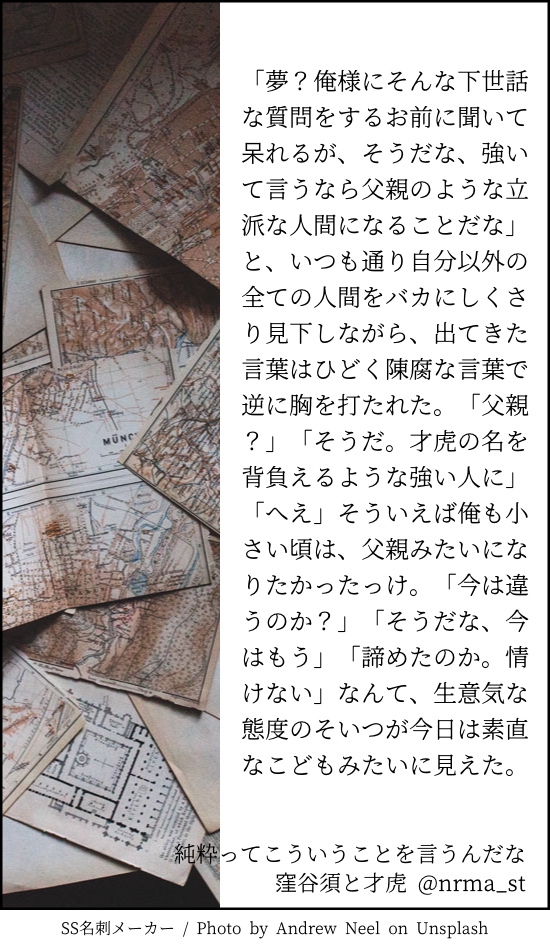 「夢？俺様にそんな下世話
な質問をするお前に聞いて
呆れるが、そうだな、強い
て言うなら父親のような立
派な人間になることだな」
と、いつも通り自分以外の
全ての人間をバカにしくさ
り見下しながら、出てきた
言葉はひどく陳腐な言葉で
逆に胸を打たれた。「父親
？」「そうだ。才虎の名を
背負えるような強い人に」
「へえ」そういえば俺も小
さい頃は、父親みたいにな
りたかったっけ。「今は違
うのか？」「そうだな、今
はもう」「諦めたのか。情
けない」なんて、生意気な
態度のそいつが今日は素直
なこどもみたいに見えた。
MÜNC
純粋ってこういうことを言うんだな
窪谷須と才虎 @nrma_st
SS名刺メーカー / Photo by Andrew Neel on Unsplash